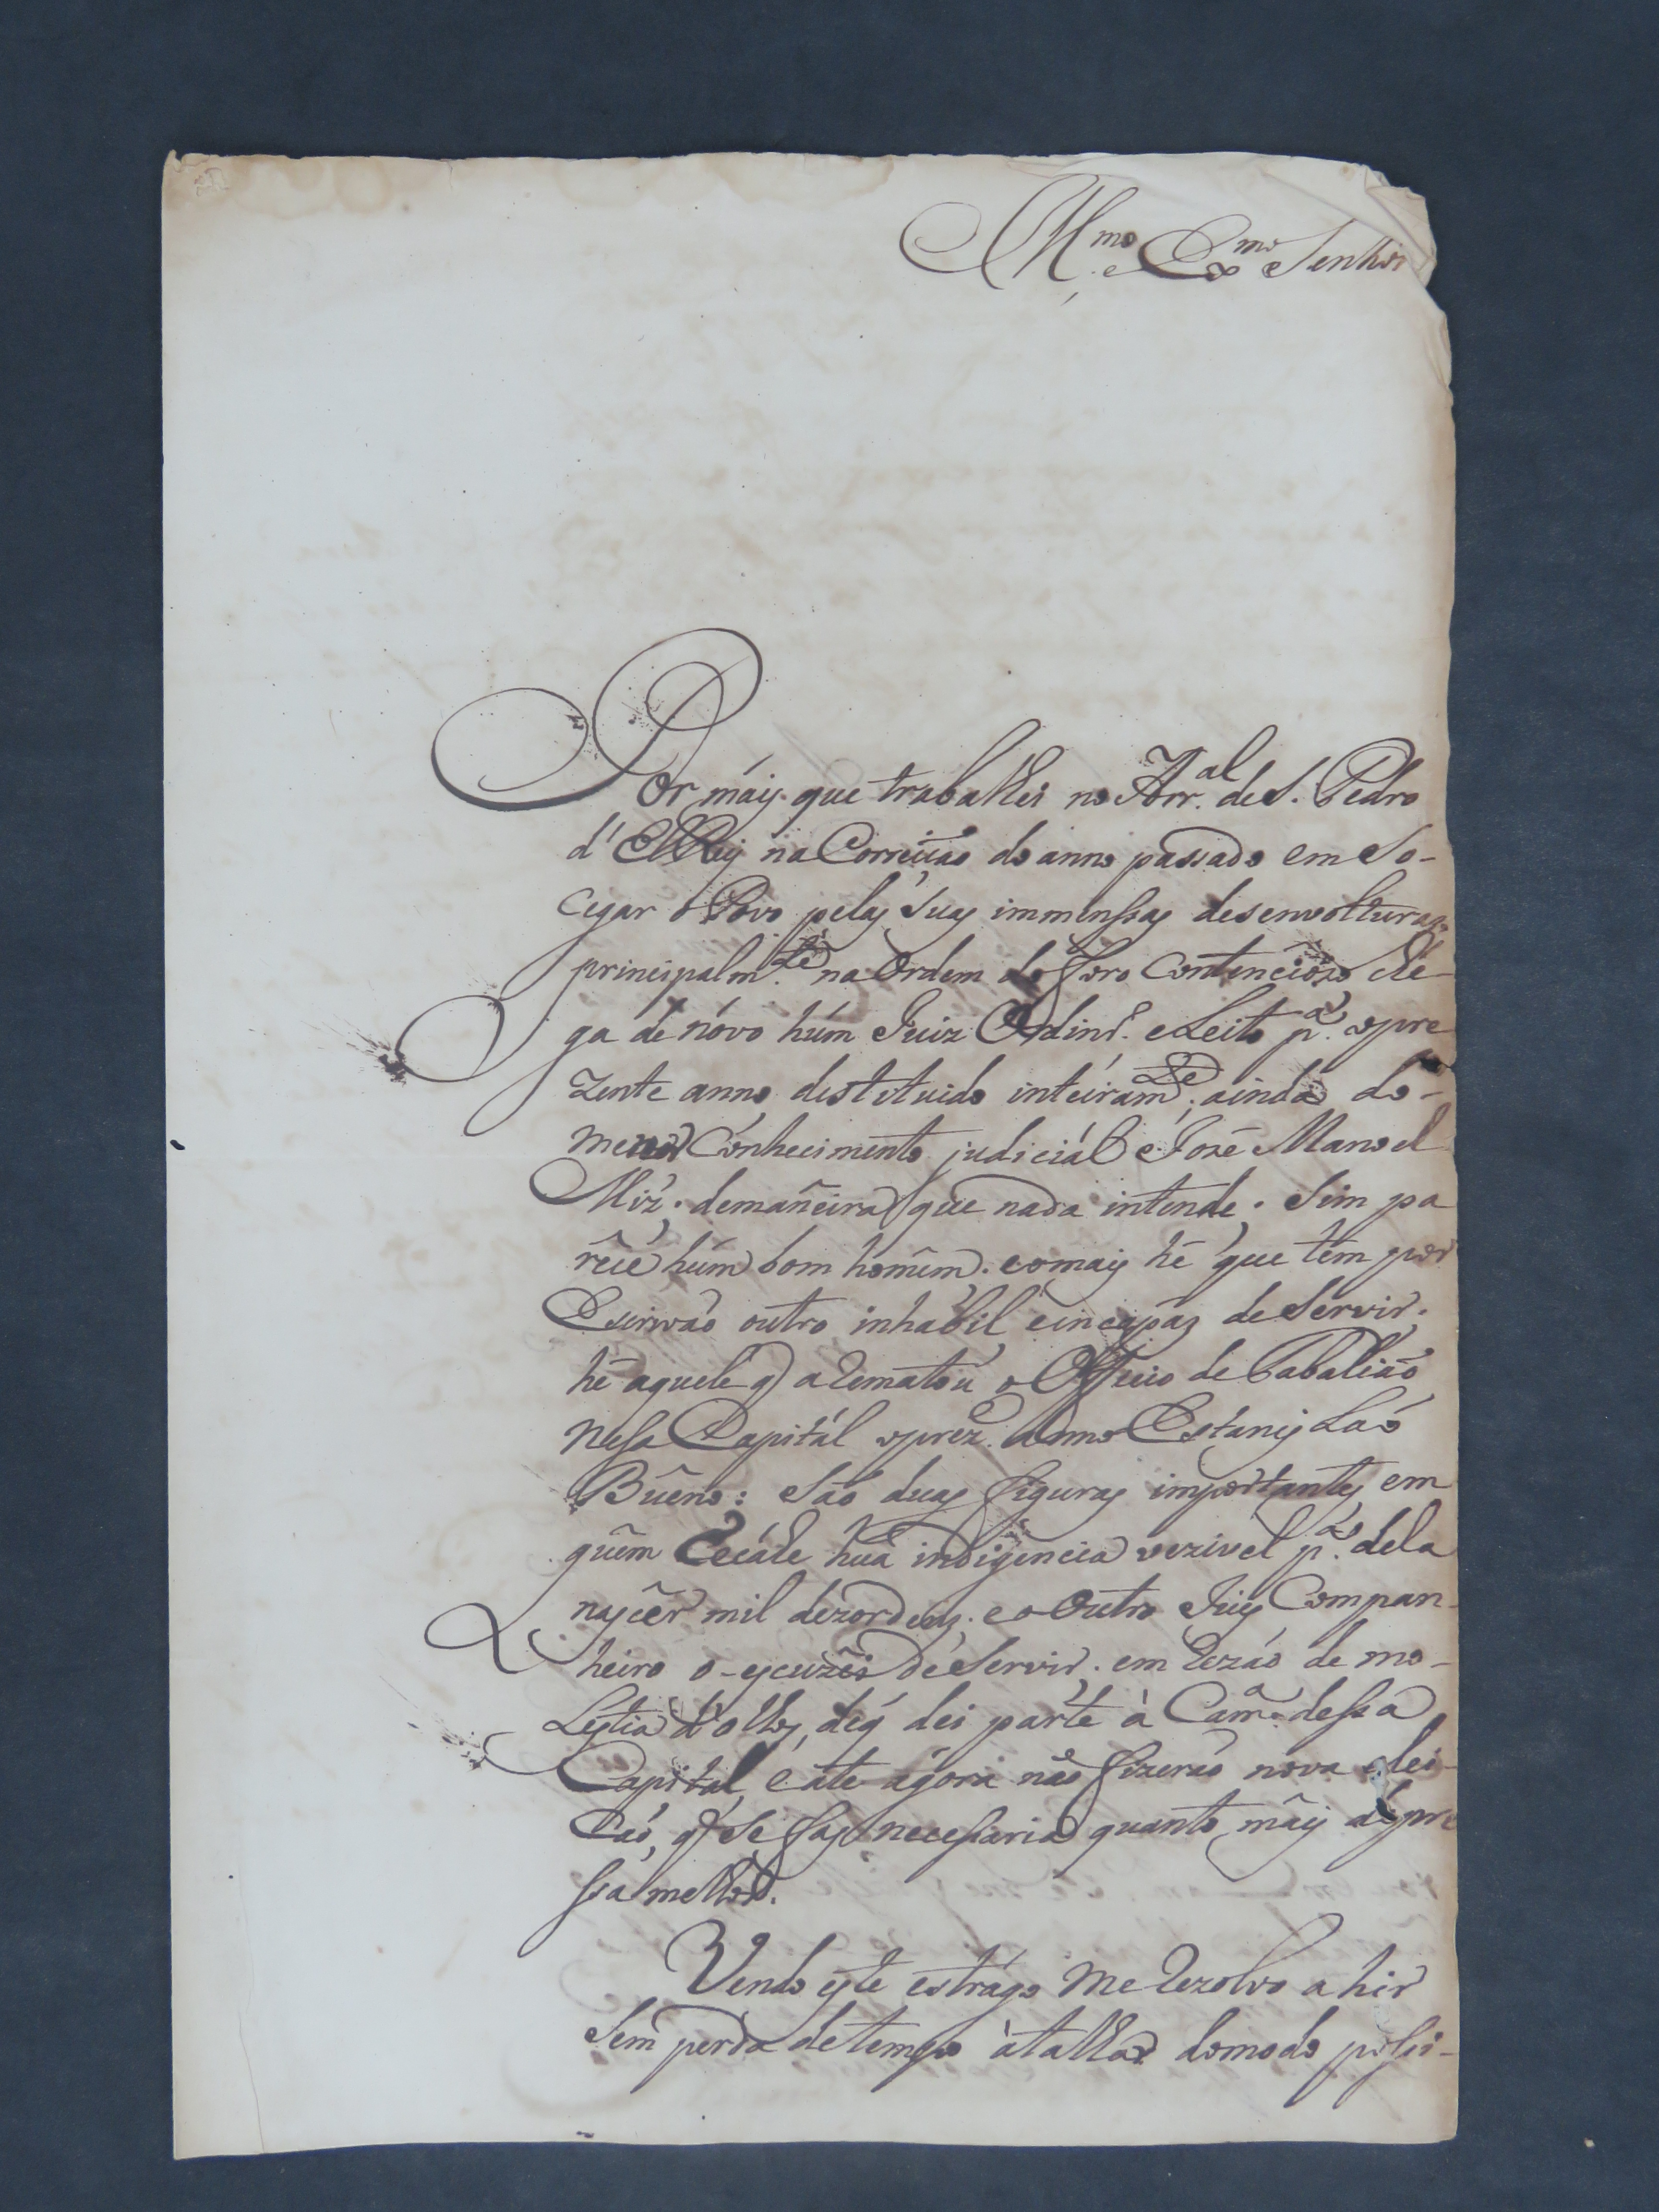 Ill.mo e Ex.mo Senhor
Por máis que trabalhei no Arr.al de S. Pedro
d'ElRey na Correição do anno passado em So-
cegar o Povo pelas suas immensas desenvolturas
principalm.te na Ordem do Foro Contencióso, che-
ga de nóvo húm Juiz Ordinr.o eLeito p.a opre
zente anno, destituido inteiram.te, ainda do-
menor Conhecimento judiciál José Manoel
Miz; demaneira que nada intende; Sim pa
réce húm bom homem. eomais hé que tem por
Escrivão outro inhabil eincapaz deServir;
hé aquele q aRematou o Officio de Tabalião
Nesa Capitál oprez.e Anno Estanisláo
Buéno: São duas figuras importantes em
quem Recáhe hua indigencia vezivel p.a dela
nascer mil dezordens. eo Outro Juis Compan-
heiro o-escuzei deServir, em Rezão de mo-
Lestia d'olhos, deq dei parte à Cam.a dessa
Capital, eate agora não fizerão nova elei-
ção, q Se fas necessaria quanto máis depre
ssa melhor.
Vendo este estrágo Me Rezolvo ahir
Sem perda detempo àtalhar domodo possi-